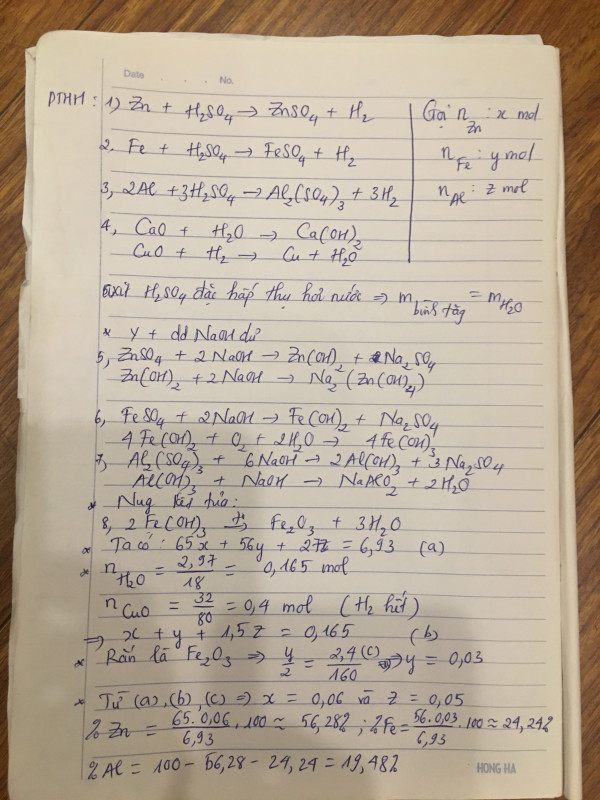 Date . . . . No.
PTHH : 1) Zn + H₂SO₄ → ZnSO₄ + H₂
Gọi n Zn : x mol
2. Fe + H₂SO₄ → FeSO₄ + H₂
n Fe : y mol
3, 2Al + 3H₂SO₄ → Al₂(SO₄)₃ + 3H₂
n Al : z mol
4, CaO + H₂O → Ca(OH)₂
CuO + H₂ → Cu + H₂O
H₂SO₄ đặc hấp thụ hơi nước ⇒ m bình tăg = m H₂O
* Y + dd NaOH dư
5, ZnSO₄ + 2NaOH → Zn(OH)₂ + Na₂SO₄
Zn(OH)₂ + 2NaOH → Na₂(Zn(OH)₄)
6, FeSO₄ + 2NaOH → Fe(OH)₂ + Na₂SO₄
4Fe(OH)₂ + O₂ + 2H₂O → 4Fe(OH)₃
7, Al₂(SO₄)₃ + 6NaOH → 2Al(OH)₃ + 3Na₂SO₄
Al(OH)₃ + NaOH → NaAlO₂ + 2H₂O
* Nug kết tủa :
8, 2Fe(OH)₃ t°→ Fe₂O₃ + 3H₂O
* Ta có : 65x + 56y + 27z = 6,93 (a)
* n H₂O = 2,97/18 = 0,165 mol
n CuO = 32/80 = 0,4 mol (H₂ hết)
⇒ x + y + 1,5z = 0,165 (b)
* Rắn là Fe₂O₃ ⇒ y/2 = 2,4/160 (c) ⇒ y = 0,03
* Từ (a), (b), (c) ⇒ x = 0,06 và z = 0,05
% Zn = 65.0,06/6,93 . 100 ≈ 56,28% ; % Fe = 56.0,03/6,93 . 100 ≈ 24,24%
% Al = 100 - 56,28 - 24,24 = 19,48%
HONG HA